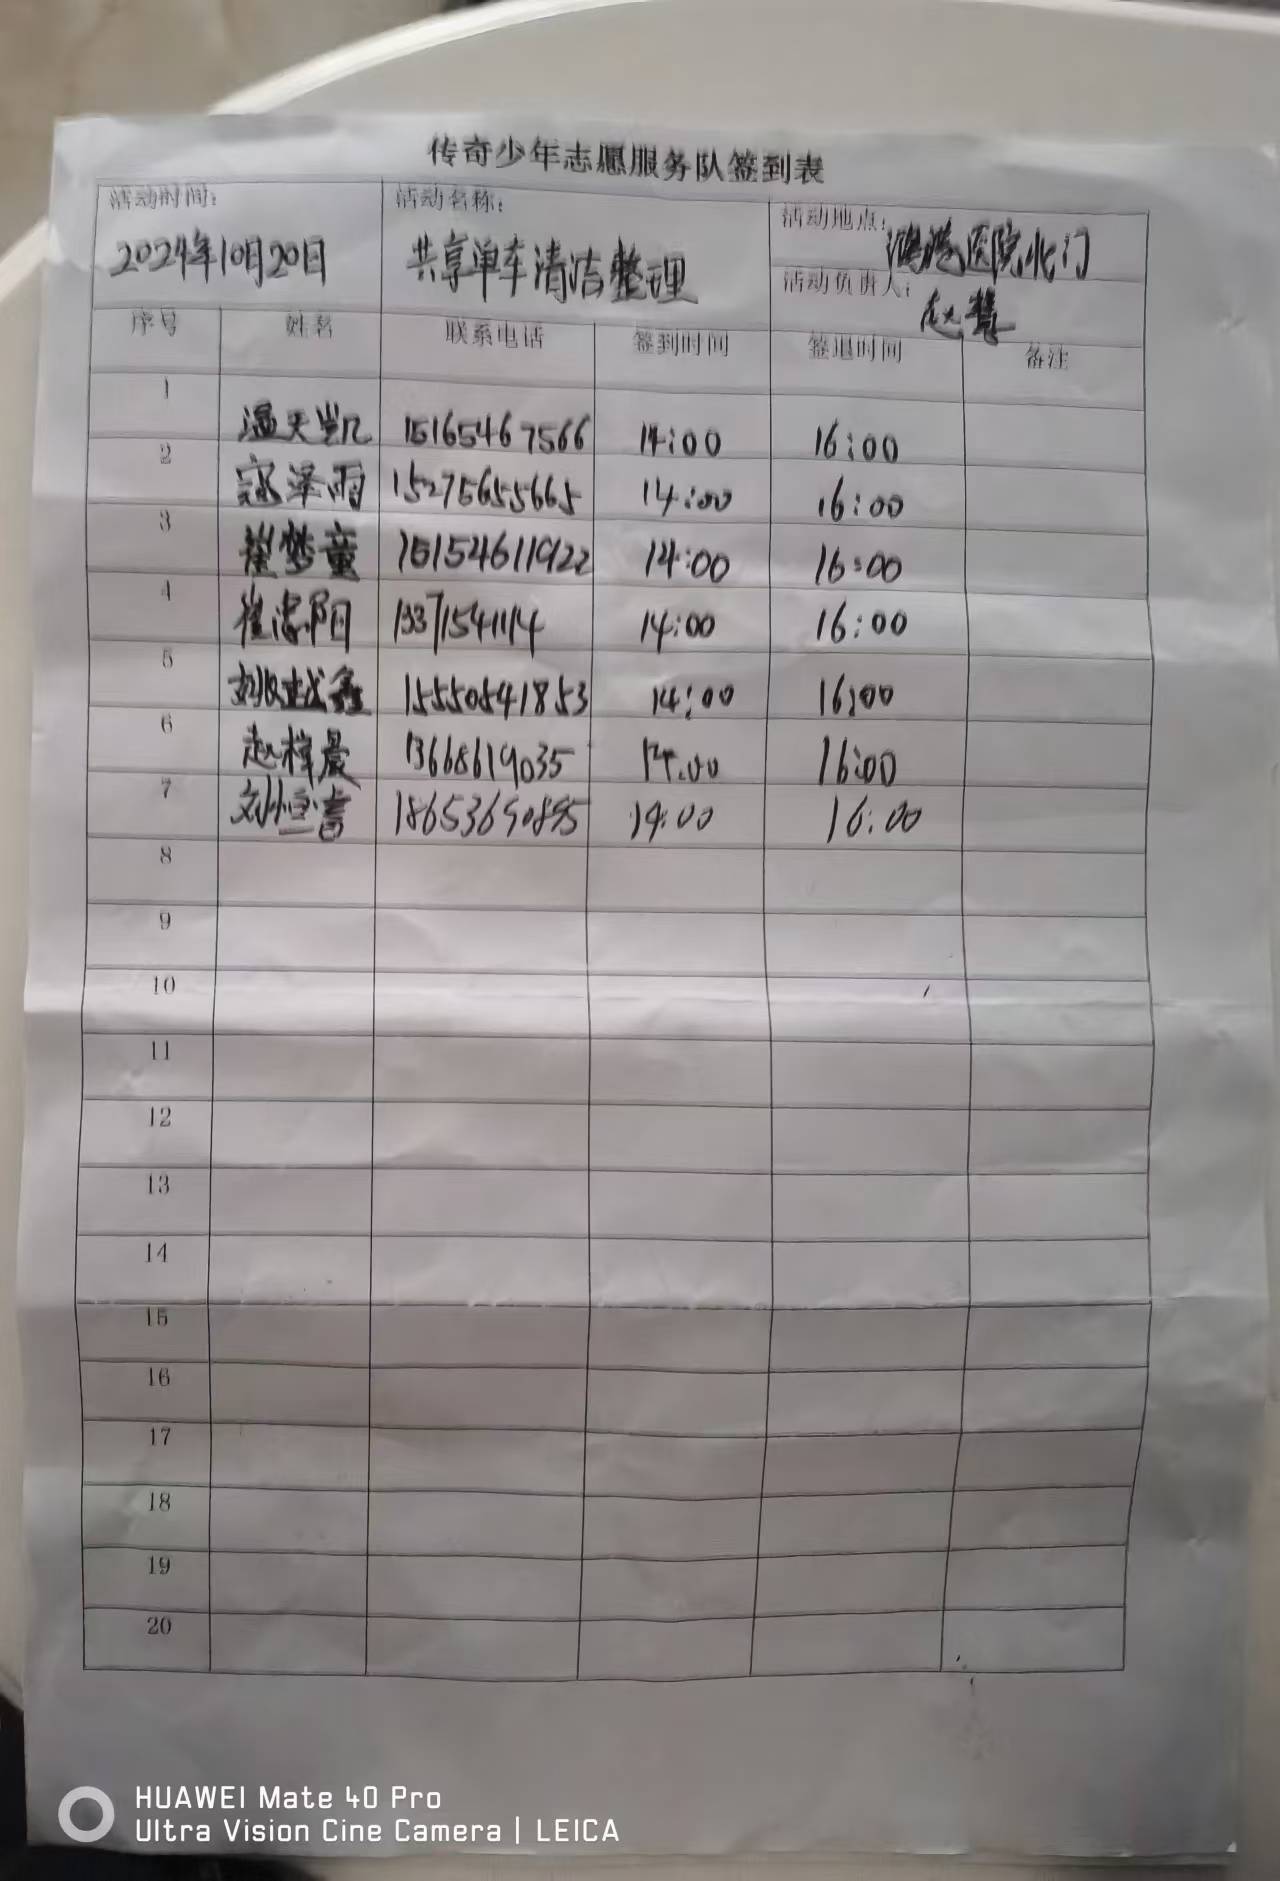 传奇少年志愿服务队签到表
活动时间： 活动名称： 活动地点：
2024年10月20日 共享单车清洁整理 鸿港医院北门
活动负责人：
赵慧
序号 姓名 联系电话 签到时间 签退时间 备注
1 温天凯 15165467566 14:00 16:00
2 寇泽雨 15275655665 14:00 16:00
3 崔梦童 15154611922 14:00 16:00
4 崔忠阳 13371541114 14:00 16:00
5 姚越鑫 15550541853 14:00 16:00
6 赵梓晨 13668619035 14:00 16:00
7 刘恒言 14:00 16:00
8
9
10
11
12
13
14
15
16
17
18
19
20
HUAWEI Mate 40 Pro
Ultra Vision Cine Camera | LEICA